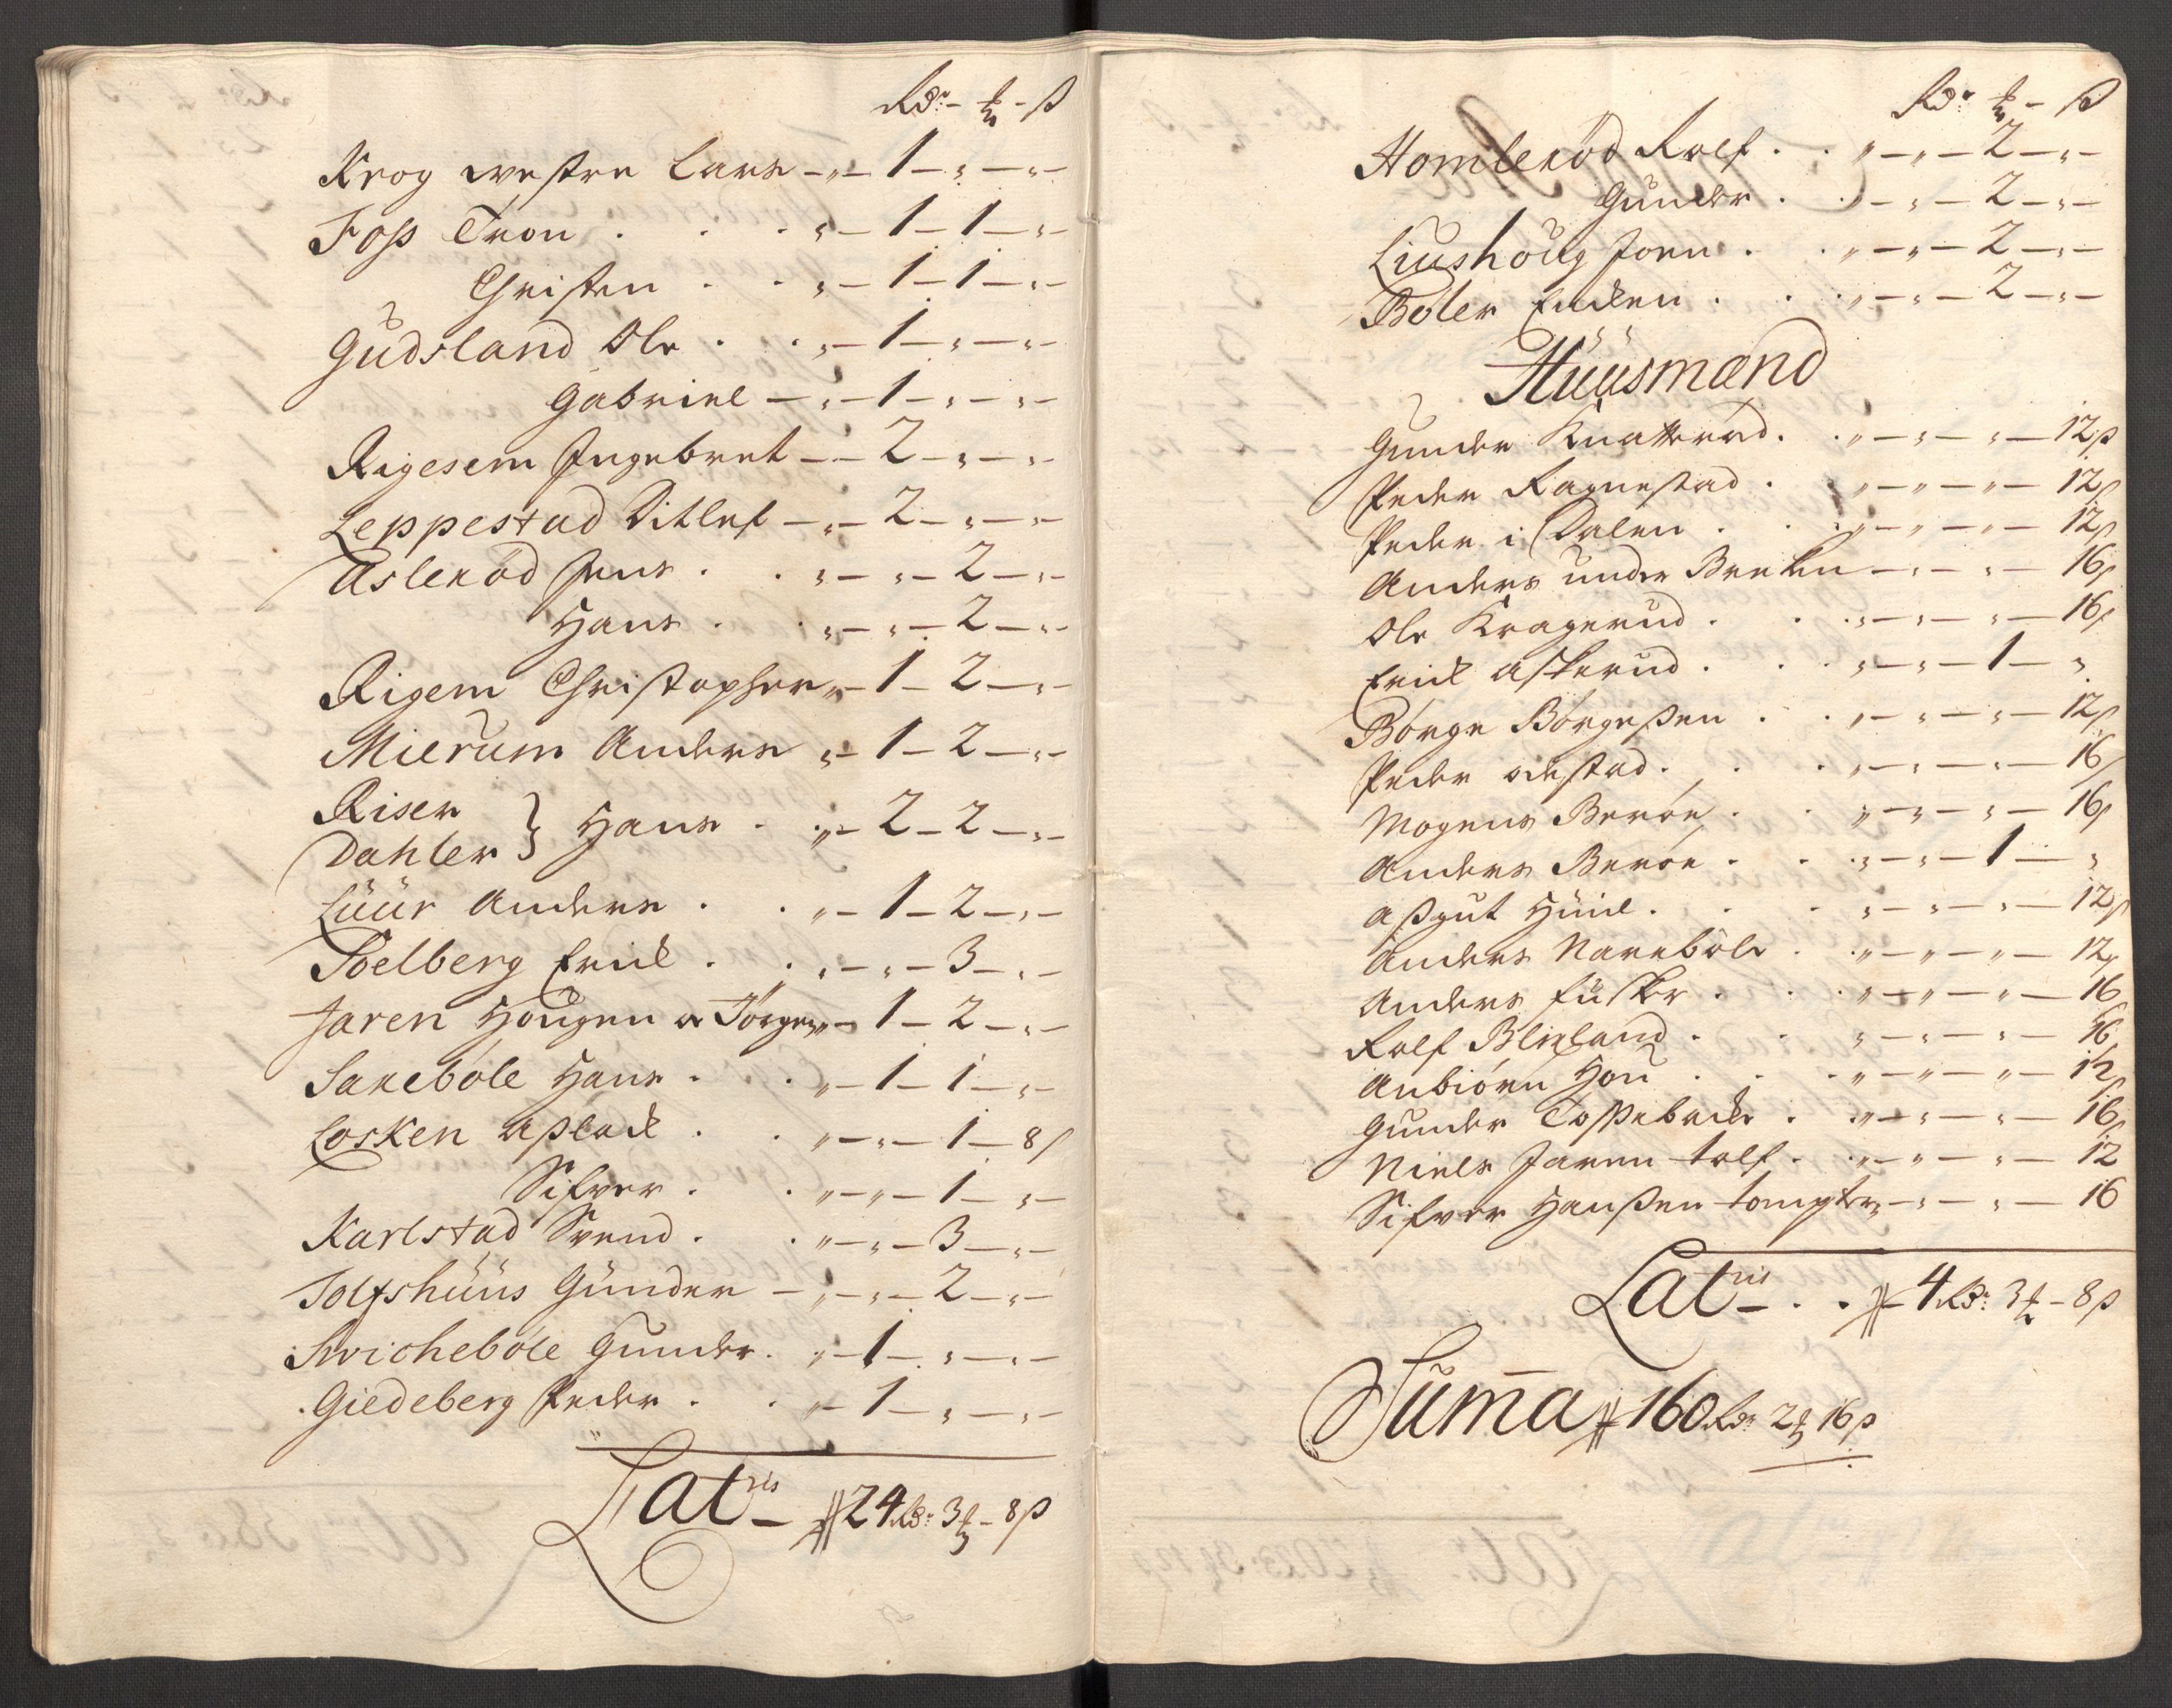 Rdr - ƒ - ß
Krog westre Lars - „ - 1 - „ - „ -
Foss Tron . . . „ - 1 - 1 - „ -
Christen . . „ - 1 - 1 - „ -
Gudsland Ole . . „ - 1 - „ - „ -
Gabriel - „ - 1 - „ - „ -
Rigesem Ingebret - - 2 - „ - „ -
Leppestad Ditlef - „ - 2 - „ - „ -
Aslerød Jens . . „ - „ - 2 - „ -
Hans . . „ - „ - 2 - „ -
Rigem Christopher „ - 1 - 2 - „ -
Mierum Anders „ - 1 - 2 - „ -
Riser
Dahler } Hans . „ - 2 - 2 - „ -
Luur Anders . . „ - 1 - 2 - „ -
Soelberg Erich . . „ - „ - 3 - „ -
Jaren Hougen og Jörgen „ - 1 - 2 - „ -
Sakebøle Hans . . „ - 1 - 1 - „ -
Losken Aslack . . „ - „ - 1 - 8ß
Sifver . . „ - „ - 1 - „ -
Karlstad Svend . . „ - „ - 3 - „ -
Tolfshuus Gunder - „ - „ - 2 - „ -
Swichebøle Gunder . „ - 1 - „ - „ -
Giedeberg Peder . . „ - 1 - „ - „ -
Latris - 24 Rdr: 3ƒ - 8ß
Rdr ƒ - ß
Homlerød Rolf . . „ - „ - 2 - „ -
Gunder . . „ - „ - 2 - „ -
Liushøug Joen . . „ - „ - 2 - „ -
Bøler Encken . . „ - „ - 2 - „ -
Huusmænd
Gunder Knatterød . . „ - „ - „ - 12ß
Peder Ragnestad . „ - „ - „ - 12ß
Peder i Dalen . . „ - „ - „ - 12ß
Anders under Brecken - „ - „ - 16ß
Ole Kragerud . . „ - „ - „ - 16ß
Erich Askerud . . „ - „ - 1 - „
Børge Børgeßen . . „ - „ - „ - 12ß
Peder Odestad . . „ - „ - „ - 16ß
Mogens Berøe . . „ - „ - „ - 16ß
Anders Berøe . . „ - „ - 1 - „
Aßgut . . „ - „ - „ - 12ß
Anders Narebøle . „ - „ - „ - 12ß
Anders Fusker . . „ - „ - „ - 16ß
Rolf Blexland . . „ - „ - „ - 16
Anbiørn Hou . . „ - „ - „ - 12
Gunder Tossebecke . „ - „ - „ - 16ß
Niels Jaren tolf . „ - „ - „ - 12
Sifver Hanßen tompter - „ - „ - 16
Latris - . . 4 Rdr: 3ƒ - 8ß
Suma 160 Rdr 2ƒ 16ß